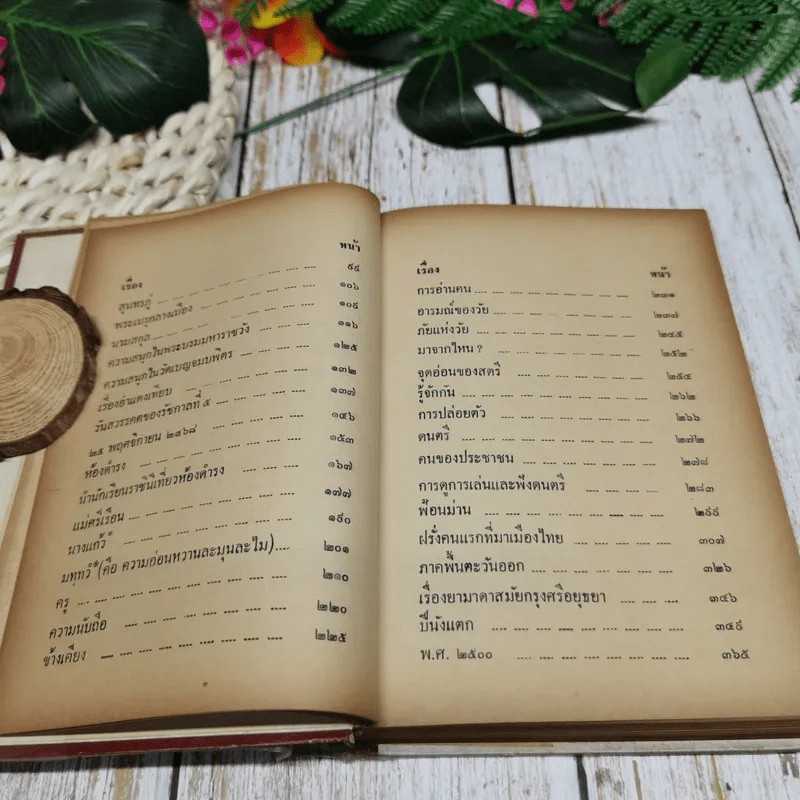 เรื่อง หน้า
สุนทรภู่ ๙๙
พระเมรุกลางเมือง ๑๐๖
นามสกุล ๑๐๙
ความสนุกในพระบรมมหาราชวัง ๑๑๖
ความสนุกในวัดเบญจมบพิตร ๑๒๕
เรื่องอำแดงเทียบ ๑๓๒
วันสวรรคตของรัชกาลที่ ๕ ๑๓๗
๒๕ พฤศจิกายน ๒๔๖๘ ๑๔๖
ห้องดำรง ๑๕๓
นำนักเรียนราชินีเที่ยวห้องดำรง ๑๖๗
แม่ศรีเรือน ๑๗๗
นางแก้ว ๑๙๐
มทฺทวํ (คือ ความอ่อนหวานละมุนละไม) ๒๐๑
ครู ๒๑๐
ความนับถือ ๒๒๐
ข้างเคียง ๒๒๕
เรื่อง หน้า
การอ่านคน ๒๓๑
อารมณ์ของวัย ๒๓๗
ภัยแห่งวัย ๒๔๕
มาจากไหน ? ๒๕๒
จุดอ่อนของสตรี ๒๕๔
รู้จักกัน ๒๖๒
การปล่อยตัว ๒๖๖
ดนตรี ๒๗๒
คนของประชาชน ๒๗๘
การดูการเล่นและฟังดนตรี ๒๘๓
ฟ้อนม่าน ๒๙๙
ฝรั่งคนแรกที่มาเมืองไทย ๓๐๗
ภาคพื้นตะวันออก ๓๒๖
เรื่องยามาดาสมัยกรุงศรีอยุธยา ๓๔๖
ปีนังแตก ๓๔๙
พ.ศ. ๒๕๐๐ ๓๖๕